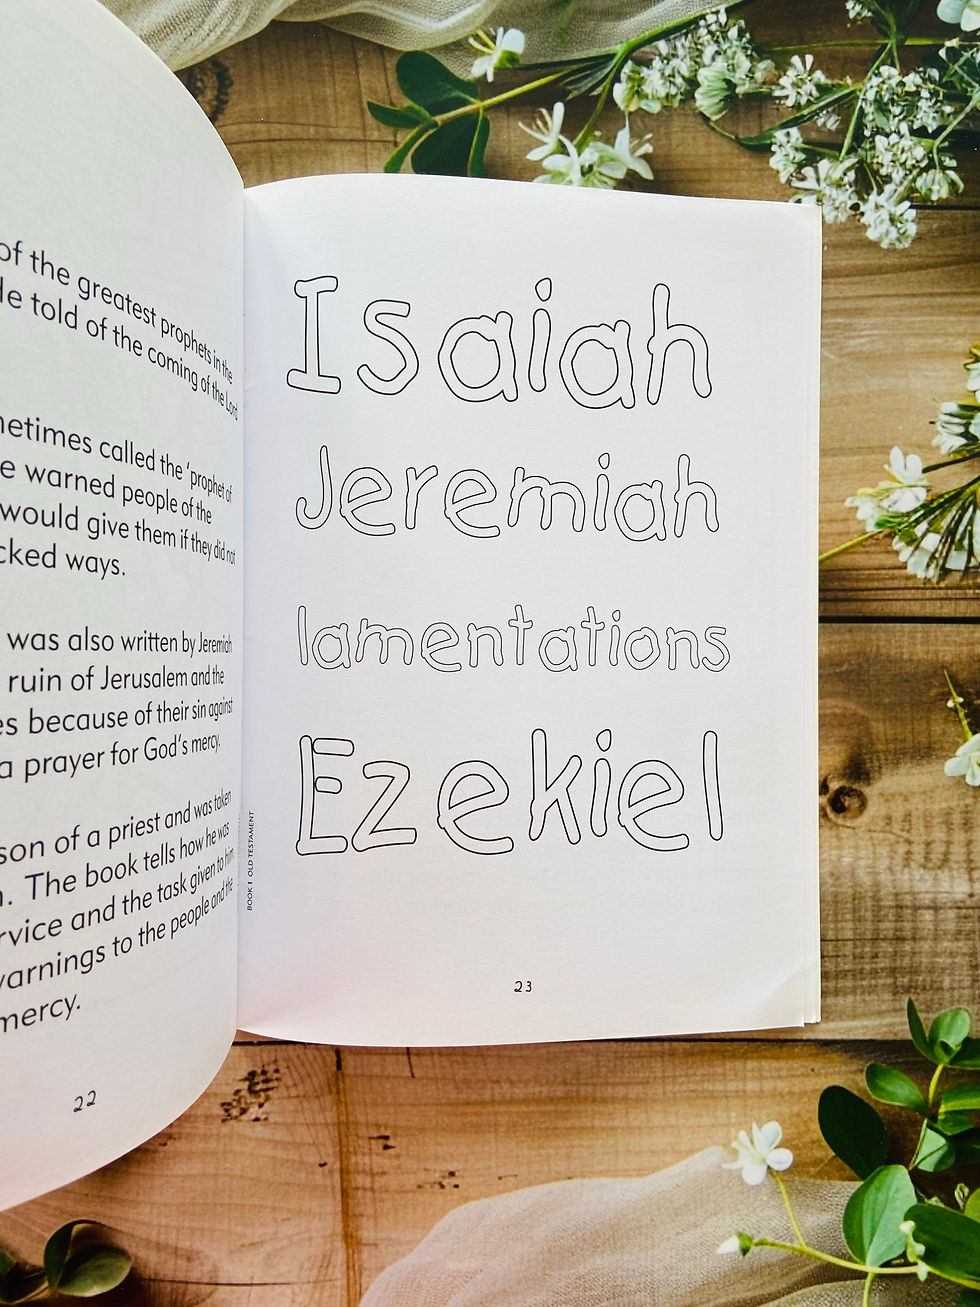 of the greatest prophets in the
He told of the coming of the Lord
metimes called the 'prophet of
e warned people of the
would give them if they did not
cked ways.
was also written by Jeremiah
ruin of Jerusalem and the
es because of their sin against
a prayer for God's mercy.
son of a priest and was taken
n. The book tells how he was
rvice and the task given to him
warnings to the people and the
mercy.
22
Isaiah
Jeremiah
lamentations
Ezekiel
BOOK 1 OLD TESTAMENT
23